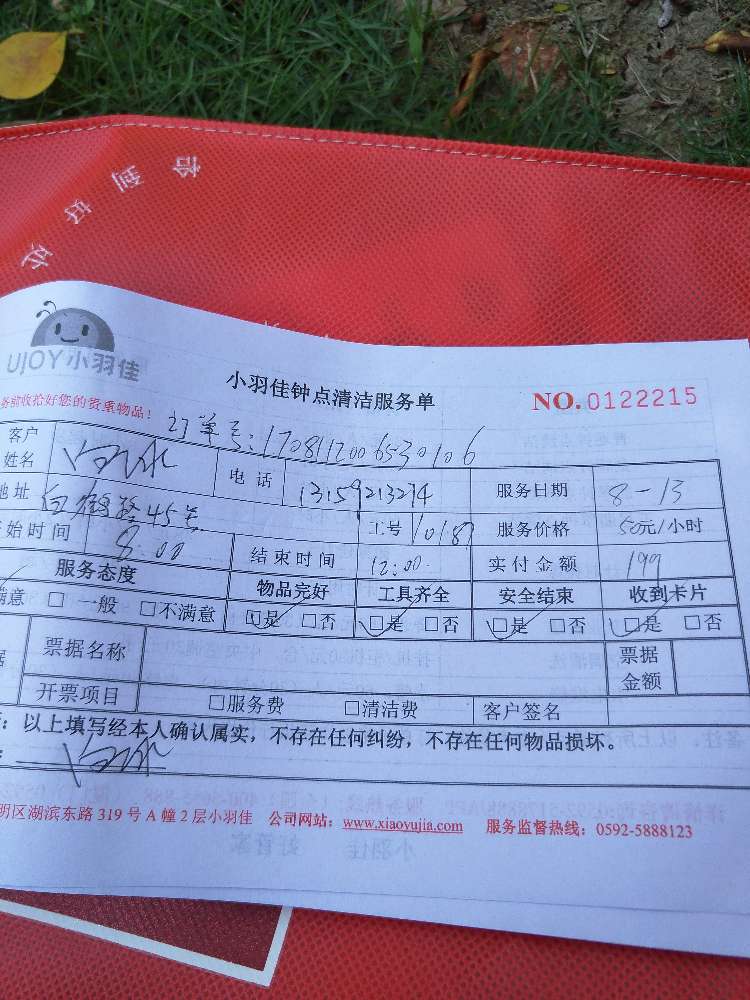 恰到好处
UJOY小羽佳
小羽佳钟点清洁服务单
NO.0122215
务前收拾好您的贵重物品!
订单号:1708112006530106
客户姓名 电话 13159213274 服务日期 8-13
地址 45 工号 10187 服务价格 50元/小时
开始时间 8:00 结束时间 12:00 实付金额 199
服务态度 物品完好 工具齐全 安全结束 收到卡片
满意 □一般 □不满意 □是 □否 □是 □否 □是 □否 □是 □否
据 票据名称 票据金额
开票项目 □服务费 □清洁费 客户签名
:以上填写经本人确认属实,不存在任何纠纷,不存在任何物品损坏。
明区湖滨东路319号A幢2层小羽佳 公司网站:www.xiaoyujia.com 服务监督热线:0592-5888123